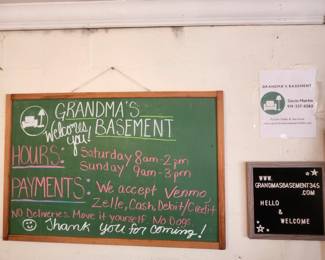 GRANDMA'S
Welcomes you!
BASEMENT
HOURS: Saturday 8am-2pm
Sunday 9am-3pm
PAYMENTS: We accept Venmo,
Zelle, Cash, Debit/Credit
NO Deliveries. Move it yourself. No Dogs.
Thank you for coming!
GRANDMA'S BASEMENT
WWW.
GRANDMASBASEMENT345
.COM
HELLO
&
WELCOME